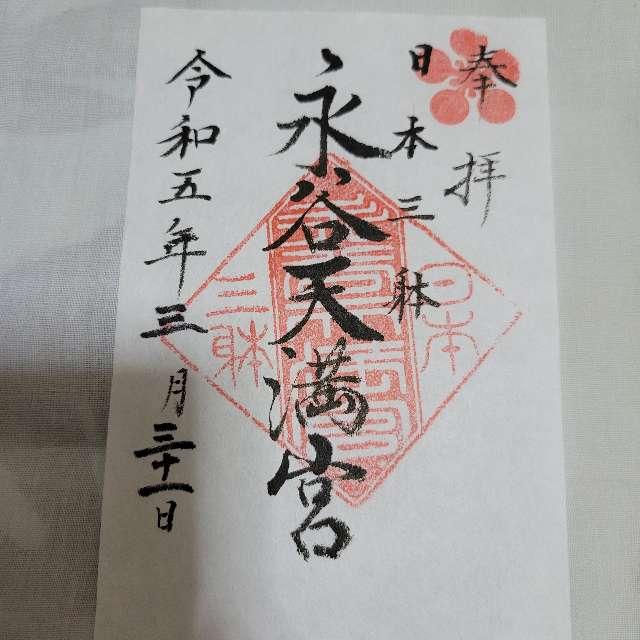 奉拝
日本三躰
永谷天満宮
令和五年三月三十一日
日本
三躰